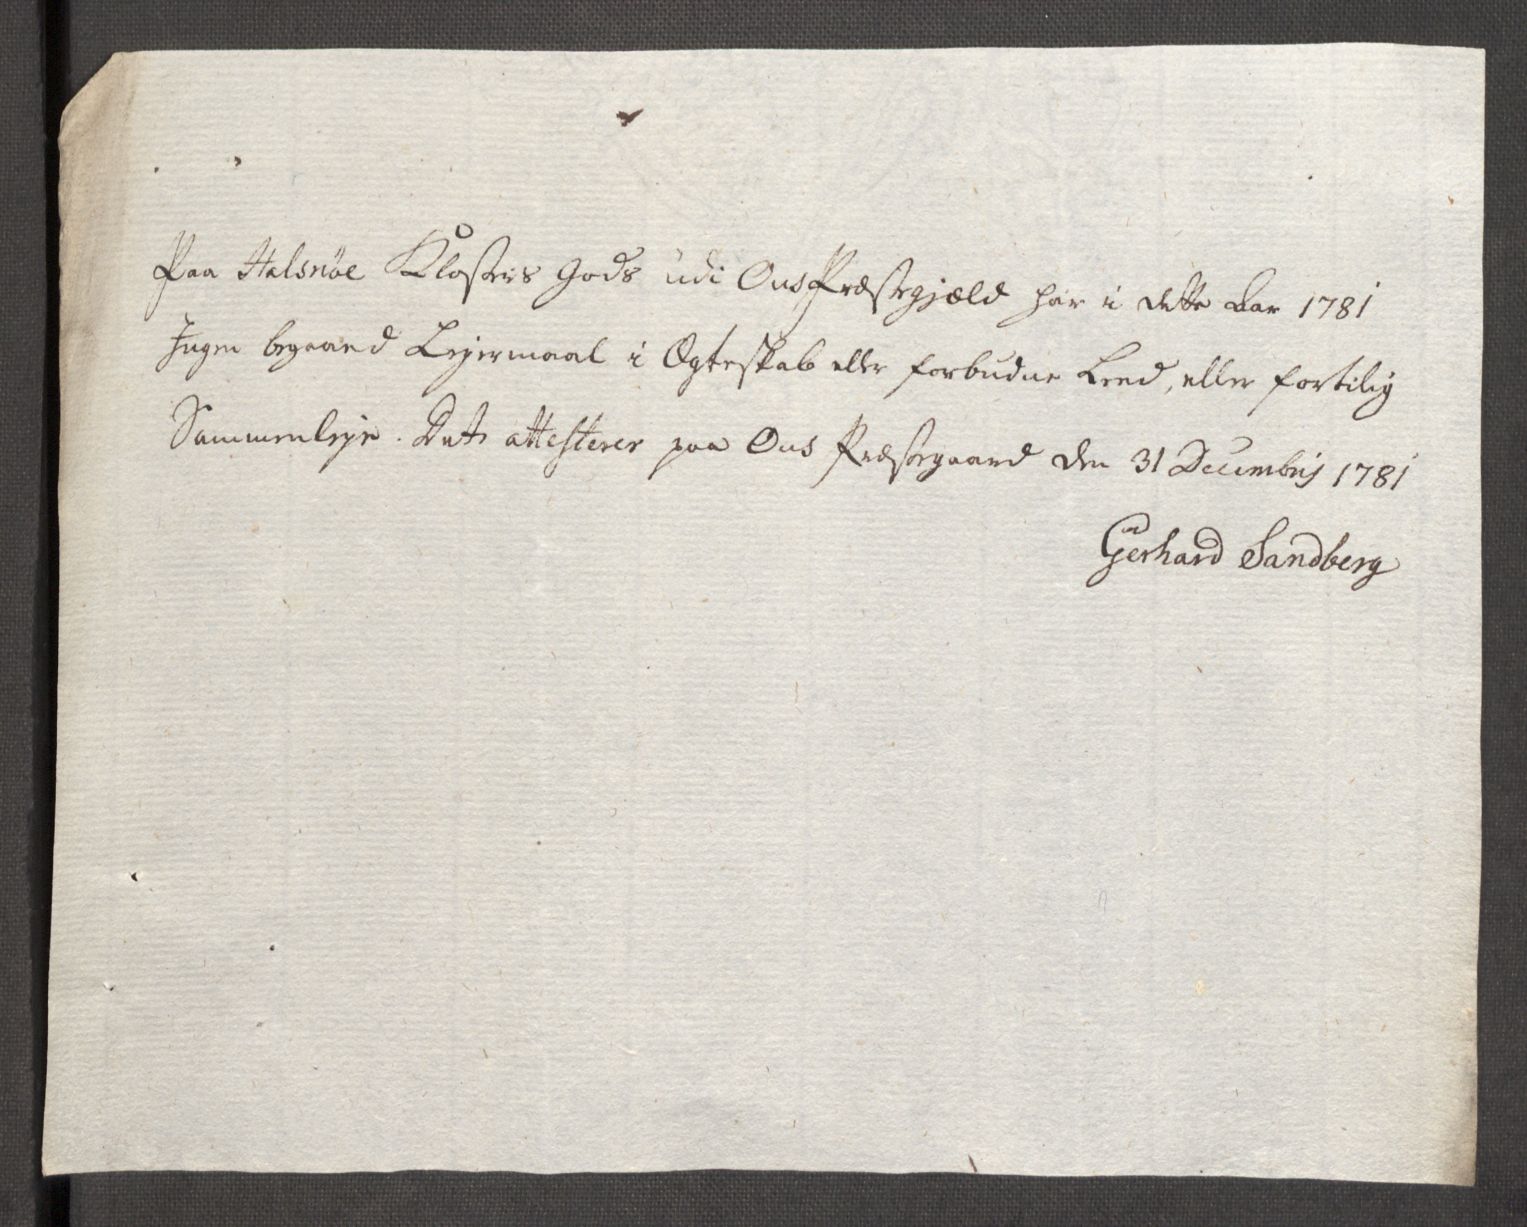 Paa Halsnöe Klosters Gods udi Ous Præstegjæld har i dette Aar 1781
Ingen begaaed Lejermaal i Ægteskab eller forbudne Leed, eller fortilig
Sammenleje. Dette attesterer paa Ous Præstegaard den 31 Decembrij 1781
Gerhard Sandberg